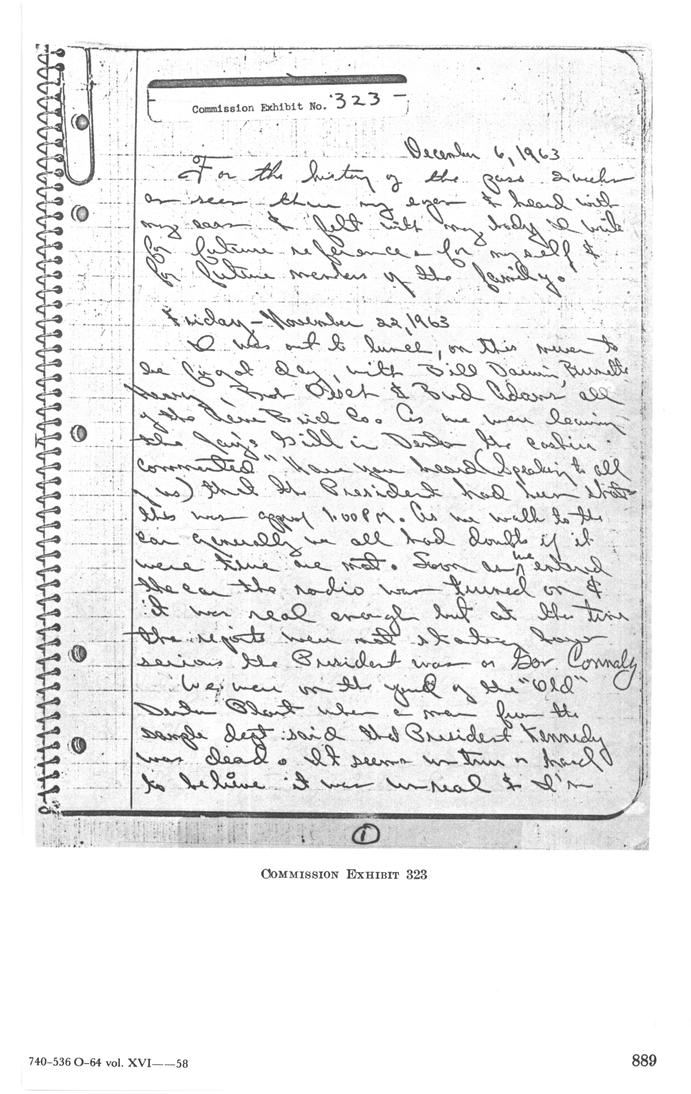 Commission Exhibit No. 323
December 6, 1963
For the history of the pass 2 weeks
as seen thru my eyes & heard with
my ears & felt with my body I write
for future reference for myself &
for future members of the family.
Friday - November 22, 1963
I was out to lunch, on this never to
be forgot day, with Bill Darwin,
Henry, & Bud Adams all
of the Acme Brick Co. As we were leaving
the Jay's Grill in Denton the cashier
commented "Have you heard (speaking to all
of us) that the President had been shot"
this was approx 1:00 PM. As we walk to the
car generally we all had doubts if it
were true are not. Soon as we entered
the car the radio was turned on &
it was real enough but at the time
the reports were not stating how
serious the President was or Gov. Connaly
We were on the yard of the "Old"
Denton Plant when a man from the
sample dept said that President Kennedy
was dead. It seems untrue or hard
to believe it was unreal & I'm
1
COMMISSION EXHIBIT 323
740-536 O-64 vol. XVI——58
889